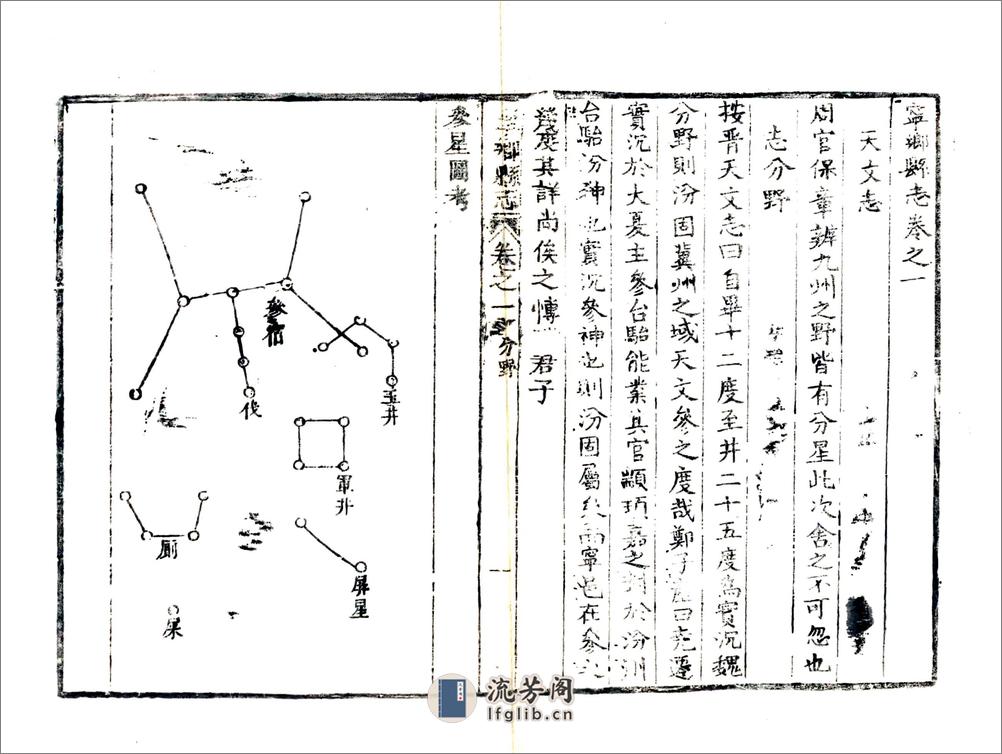 寧鄉縣志卷之一
天文志
周官保章辨九州之野皆有分星此次舍之不可忽也
志分野
按晋天文志曰自畢十二度至井二十五度爲實沉魏
分野則汾固冀州之域天文參之度哉鄭子産曰堯遷
實沉於大夏主參台駘能業其官顓頊嘉之封於汾川
台駘汾神也實沉參神也則汾固屬參而寧邑在參
度其詳尚俟之博 君子
鄉縣志 卷之一 分野 一
參星圖考
參宿
伐
玉井
軍井
厠
屏星
屎
流芳阁
lfglib.cn